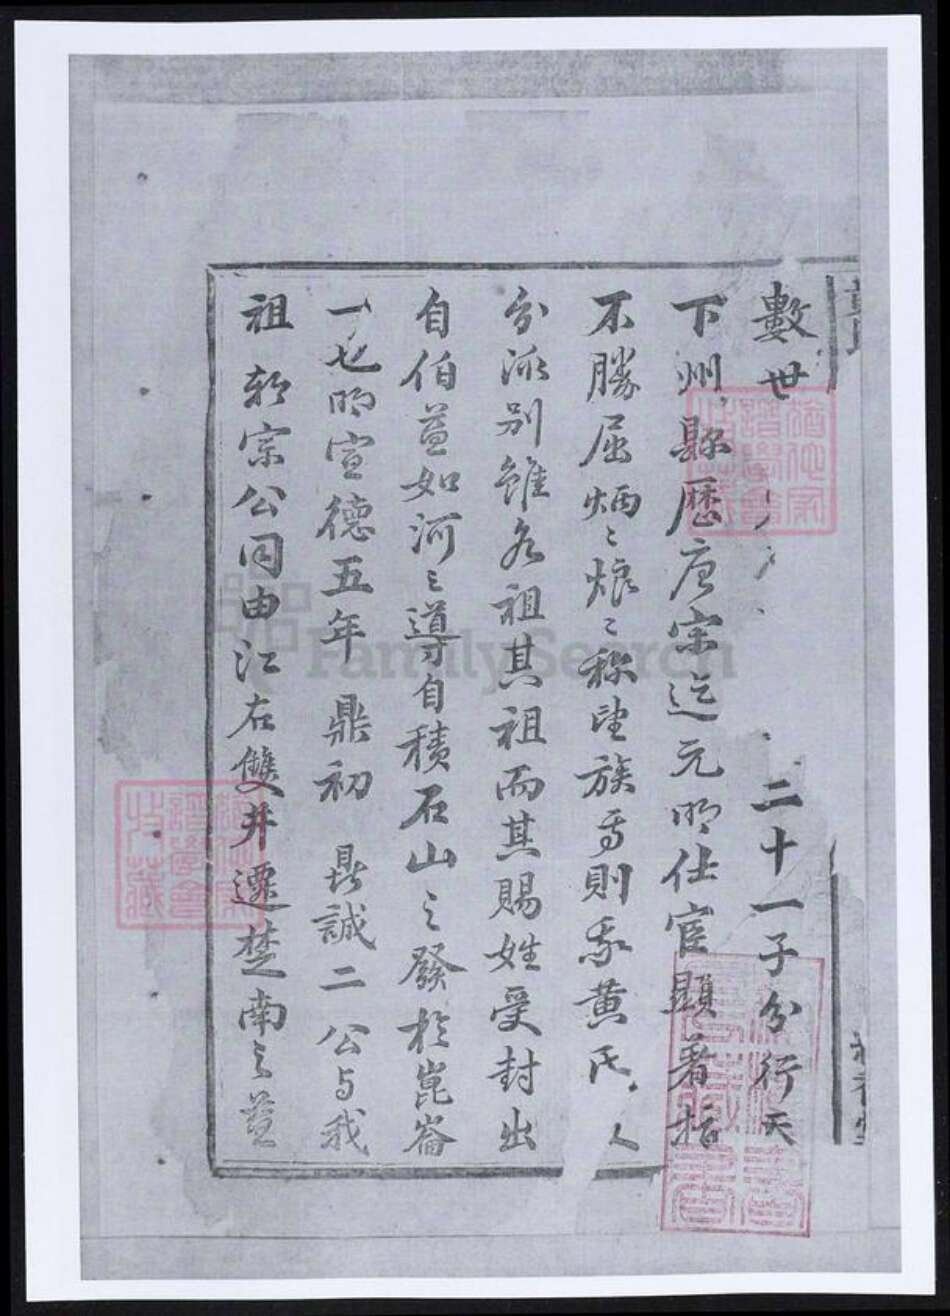 數世 二十一子分行天
下州縣歷唐宋迄元明仕宦顯著指
不勝屈炳〻烺〻称望族焉則我黄氏人
分派别雖各祖其祖而其賜姓受封出
自伯益如河之導自積石山之發於崑崙
一也明宣德五年 鼎初 鼎誠二公与我
祖 朝宗公同由江右雙井遷楚南之益
FamilySearch